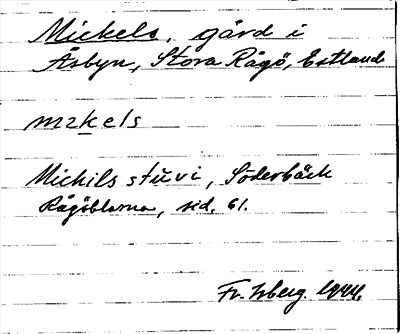 Mickels, gård i
Åsbyn, Stora Rågö, Estland
mıkels
Michils stŭvi, Söderbäck
Rågöborna, sid. 61.
Fr. Isberg 1944.